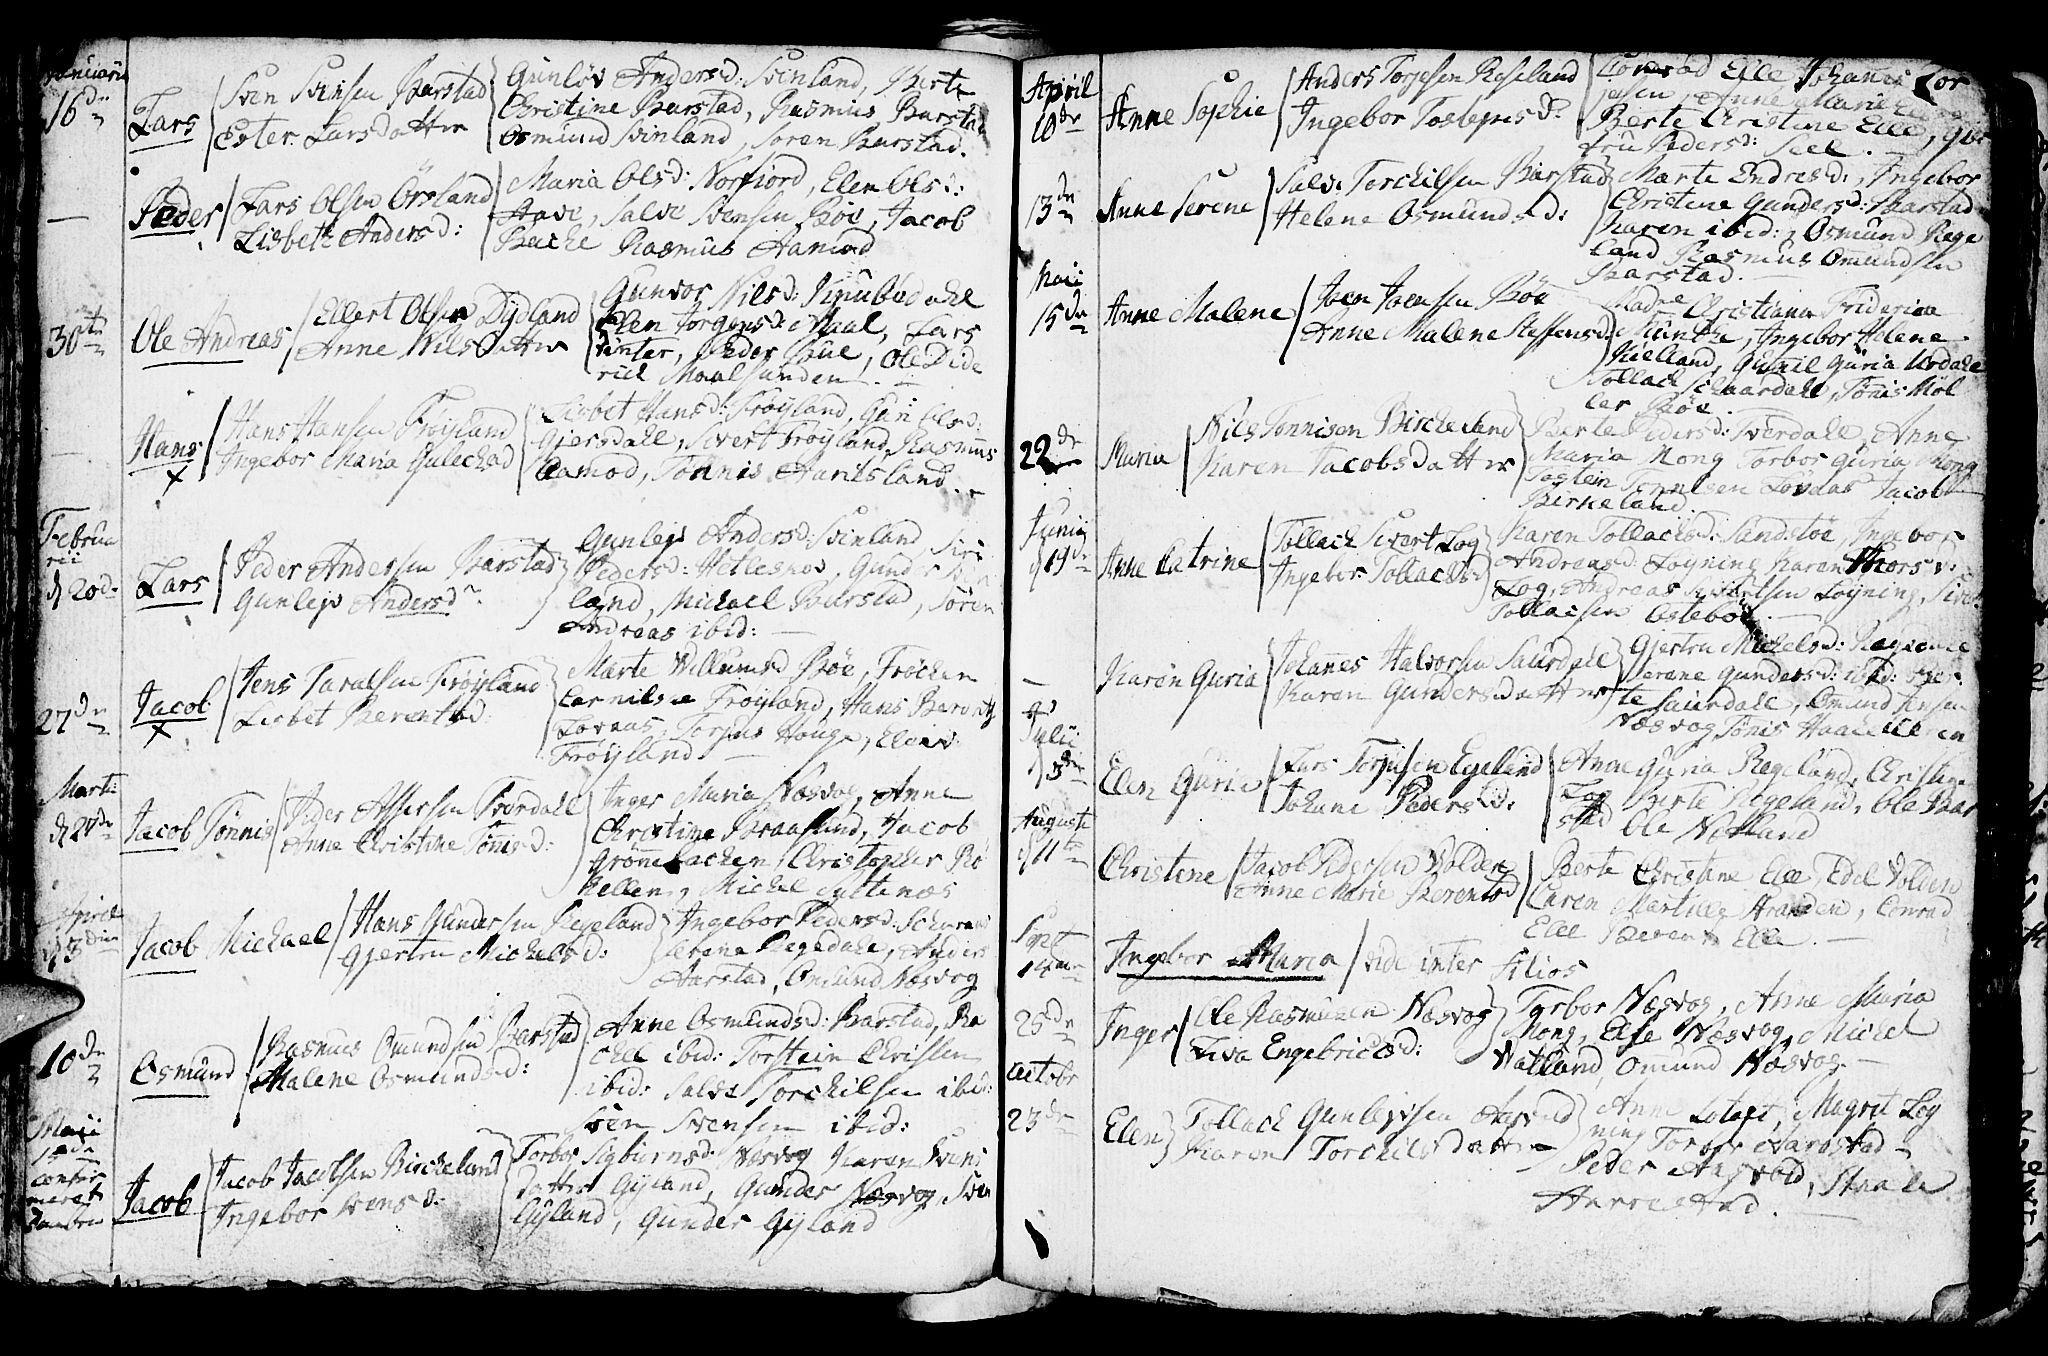 Januarii
16de Lars
Sven Svensen Barstad
Ester Larsdatter
Gunlöv Andersd: Svinland, Berte
Christine Barstad, Rasmus Barstad
Osmund Svinland, Soren Barstad.
Peder
Lars Olsen Örsland
Lisbeth Andersd:
Maria Olsd: Norfiord, Elen Olsd:
Aave, Salve Svensen Böe, Jacob
Bache Rasmus Aamod
30te Ole Andreas
Ellert Olsen Dydland
Anne Nilsdatter
Gunvor Nilsd: Knubedahl
Elen Jorgensd: Maal, Lars
vinter, Peder Bue, Ole Dide
rich Maalsunden
Hans
Hans Hansen Fröyland
Ingebor Maria Gulechsd
Lisbet Hansd: Fröyland, Guri
Gjersdahl, Sivert Fröyland, Rasmus
Aamod, Tönnis Aarilsland
Februa
rii
d 20de Lars
Peder Andersen Barstad
Gunlejv Andersdr
Gunlejv Andersd: Svinland Siri
Pedersd: Hetleskov, Gunder Svin
land, Michael Barstad, Sören
Andreas ibid:
27de Jacob
Jens Taralsen Fröyland
Lisbet Berentsd:
Marte Willumsd Böe, Fröchen
Cornilse Fröyland, Hans Barontz
Lovaas, Torjus Houge, Elav
Fröyland
Marti
d 28de Jacob Tönnis
Peder Assersen Tverdahl
Anne Christine Tönisd:
Inger Maria Næsvog, Anne
Christine Braaslund, Jacob
Grönnebachen, Christopher Rö
kellen, Michel Syltenæs
April
d 3die Jacob Michael
Hans Gundersen Regeland
Gjertru Michelsd:
Ingebor Pedersd:
Serena Regedahl, Anders
Aarstad, Omund Næsvog
10de Osmund
Rasmus Omundsen Barstad
Malene Osmundsd:
Anne Osmundsd: Barstad, Ra
chel ibid: Torstein Christen
ibid: Salve Torchilsen ibid:
Sven Svensen ibid:
Maji
Jacob
Jacob Jacobsen Bircheland
Ingebor Svensd:
Torbor Sigbiørnsd: Næsvog Karen Svens
datter Gyland, Gunder Næsvog, Sven
Gyland, Gunder Gyland
April
10de Anne Sophie
Anders Torjesen Roseland
Ingebor Tostensd:
Conrad Elle Johannes Tor
jesen, Anne Marie
Berte Christine Elle, Gier
tru Pedersd: Seel
13de Anne Serene
Salve Torchilsen Barstad
Helene Osmundsd:
Marte Endresd:, Ingebor
Christine Gundersd: Barstad
Karen ibid:, Osmund Rege
land Rasmus Omundsen
Barstad.
Maii
15de Anne Malene
Joen Joensen Böe
Anne Malene Steffensd:
Madme Christiana Friderica
Müntze, Ingebor Helene
Kielland, Guri Guria Urdahl
Tollach Schaardahl, Tönis Möl
ler Böe.
22de Maria
Nils Tönnisen Bircheland
Karen Jacobsdatter
Berte Pedersd: Tverdahl, Anne
Maria Mong Torbor Guria Mong
Tostein Tönnisen Lovaas Jacob
Birkeland.
Junii
d 19de Anne Catrine
Tollach Sivert Log
Ingebor Tollachsd:
Karen Tollachsd: Sandstöe, Ingebor
Andreasd: Loyning Karen Thorsd:
Log, Andreas Sivertsen Loyning,
Tollachsen Östeböe
Karen Guria
Johannes Halvorsen Saurdahl
Karen Gundersdatter
Gjertru Michelsd: Regedahl
Serene Gundersd: ibid: Ber
te Saurdahl, Omund Jensen
Næsvog, Tönis
Julii
d 3die Elen Guria
Lars Torjusen Egeland
Johane Pedersd:
Anne Guria Regeland, Christine
Log Berte Regeland, Ole Bar
stad Ole Netland
Augusti
d 11te Christine
Jacob Pedersen Volden
Anne Marie Berentsd
Berte Christine Elle, Edel Volden
Caren Martille Aranden, Conrad
Elle Berent Elle.
Sept
Ingebor Maria
vide inter filios
25de Inger
Ole Rasmusen Næsvog
Siva Engebrictsd:
Torbor Næsvog, Anne Maria
Mong, Else Næsvog, Michel
Vatland, Omund Næsvog.
octobr
23de Elen
Tollach Gunlejvsen Aasvold
Karen Torchilsdatter
Anne Lotoft, Magret Loy
ning Torbor Aarstad
Peder Aasvold, Staale
Aarrestad.